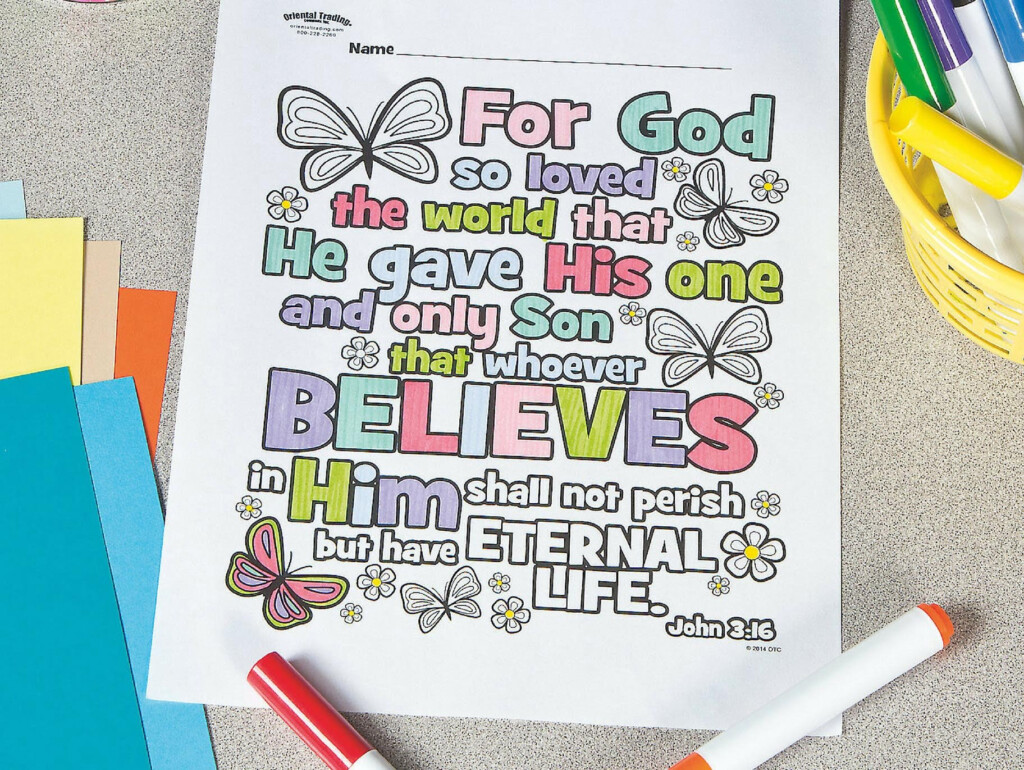 Oriental Trading
COMPANY, INC.
orientaltrading.com
800-228-2269
Name
For God
so loved
the world that
He gave His one
and only Son
that whoever
BELIEVES
in Him shall not perish
but have ETERNAL
LIFE.
John 3:16
© 2014 OTC